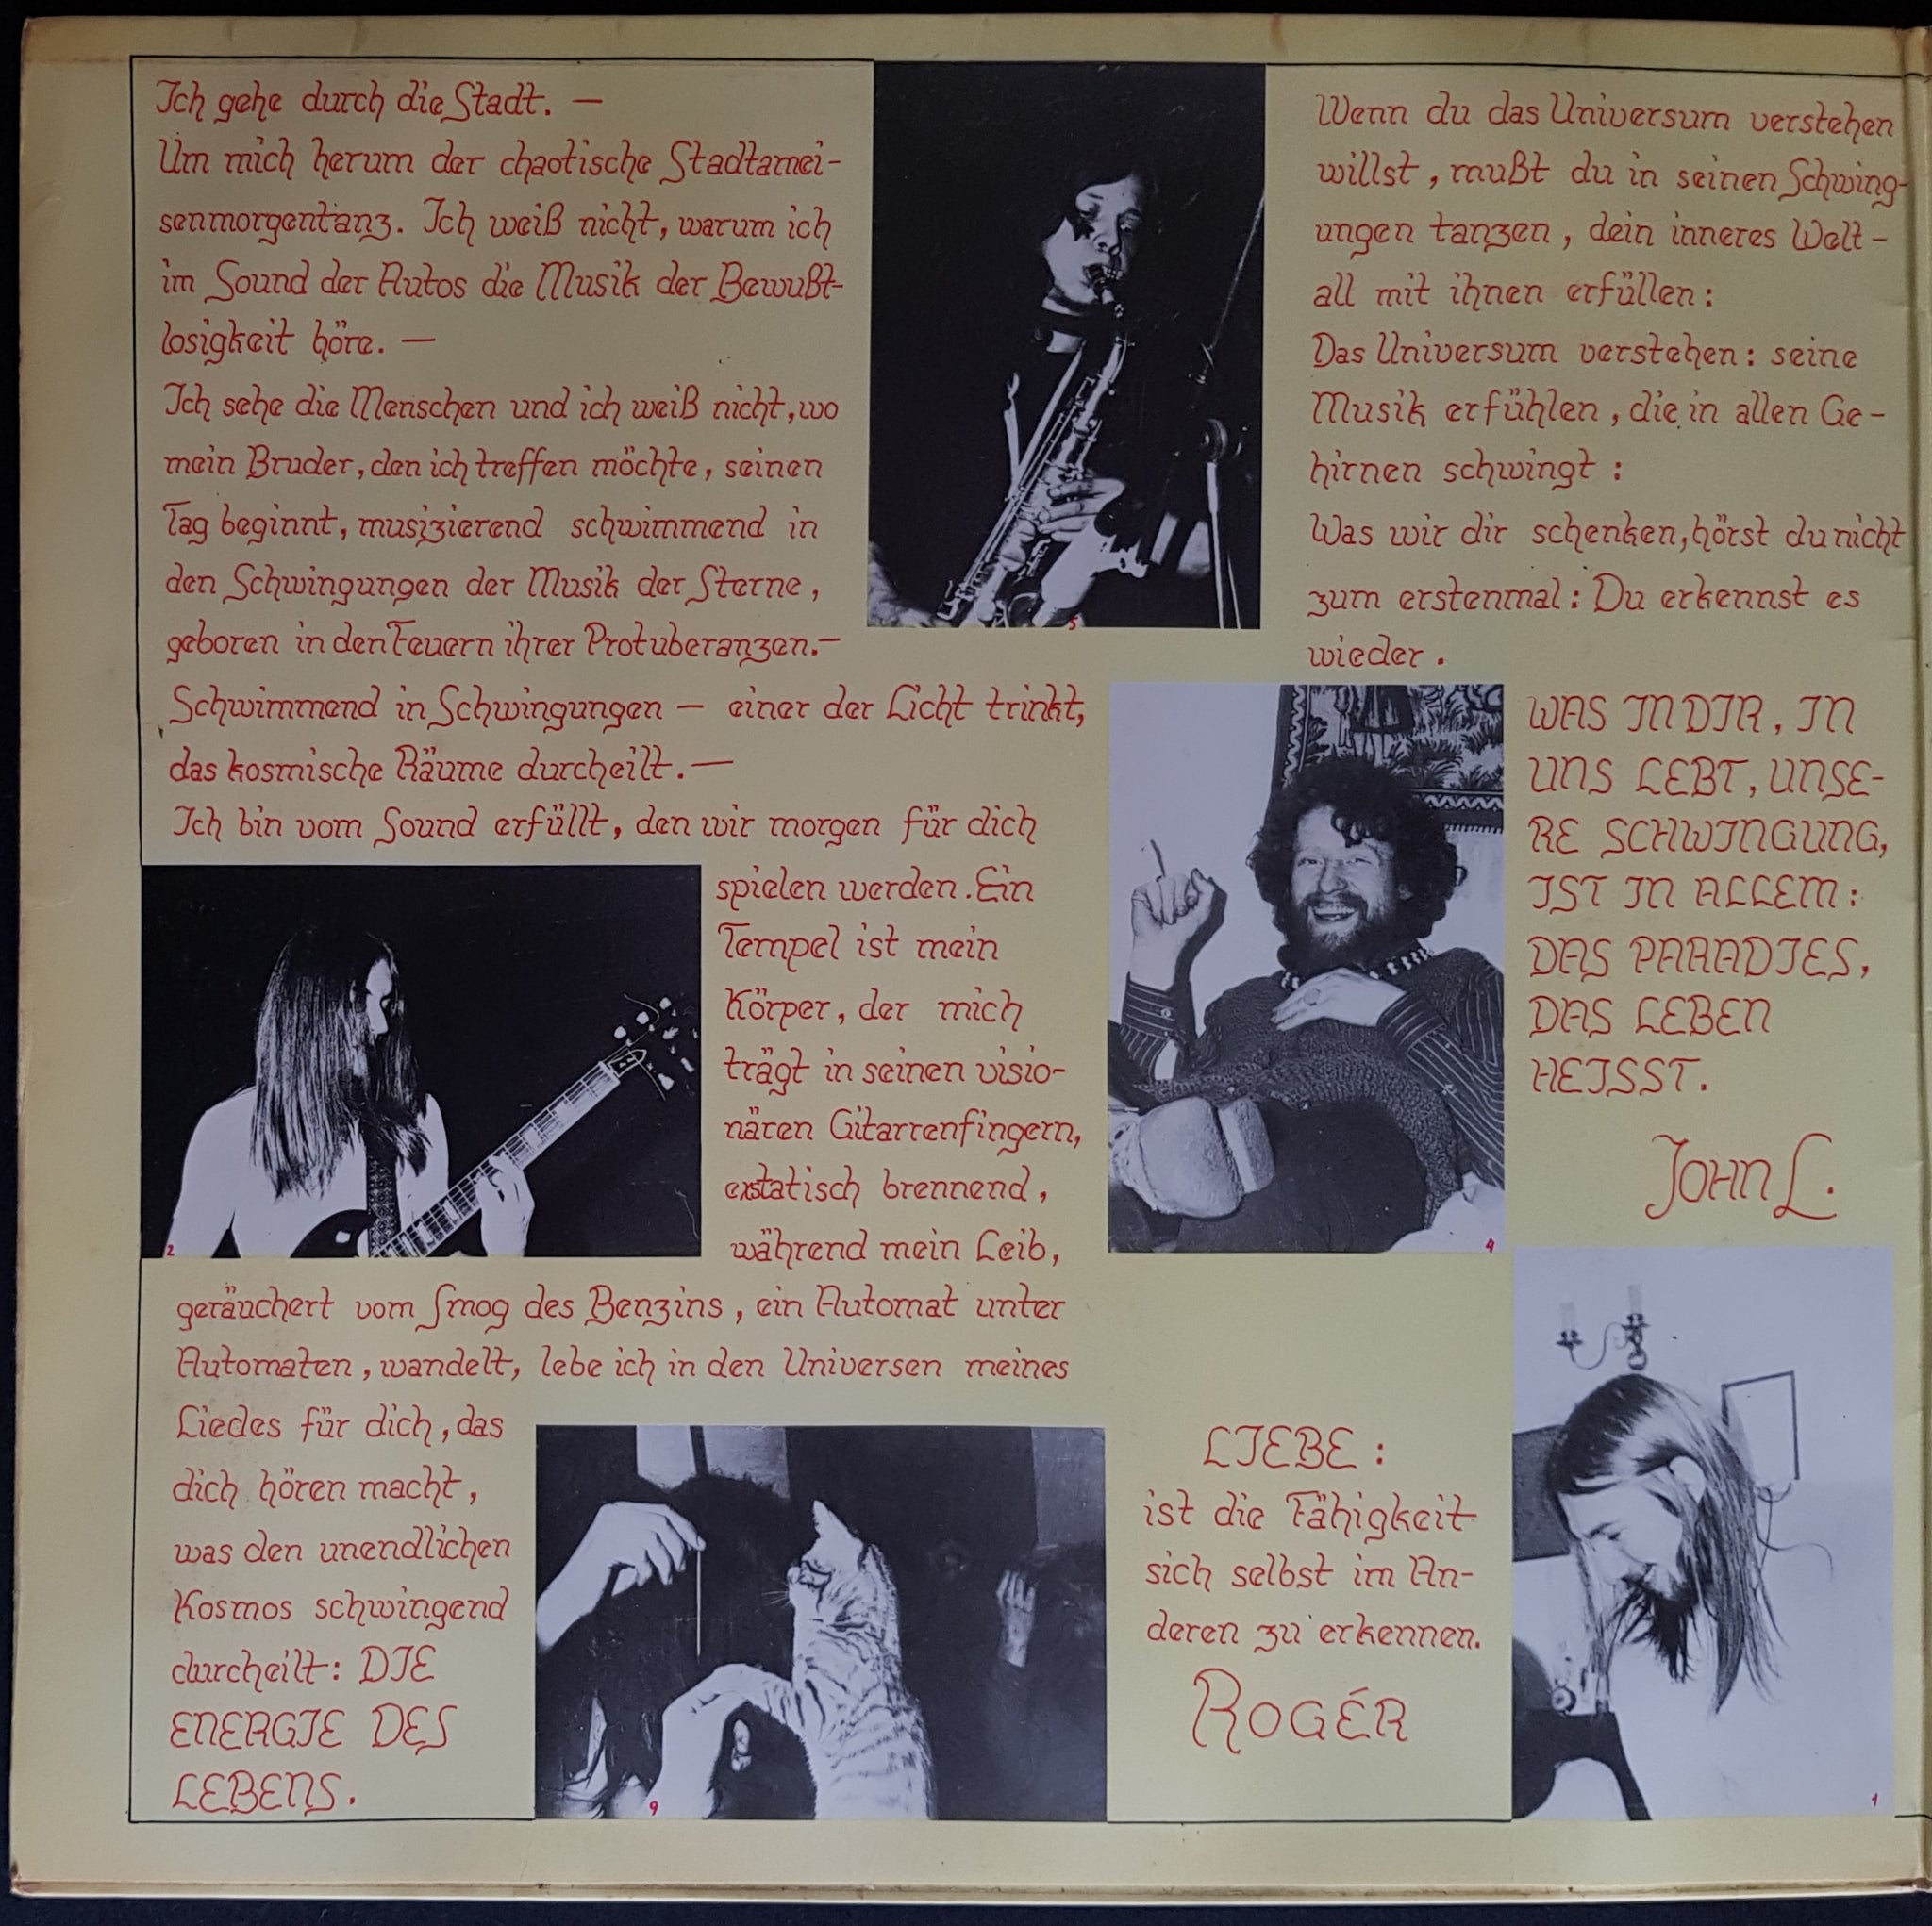 Ich gehe durch die Stadt. —
Um mich herum der chaotische Stadtamei-
senmorgentanz. Ich weiß nicht, warum ich
im Sound der Autos die Musik der Bewußt-
losigkeit höre. —
Ich sehe die Menschen und ich weiß nicht, wo
mein Bruder, den ich treffen möchte, seinen
Tag beginnt, musizierend schwimmend in
den Schwingungen der Musik der Sterne,
geboren in den Feuern ihrer Protuberanzen.—
Schwimmend in Schwingungen — einer der Licht trinkt,
das kosmische Räume durcheilt.—
Ich bin vom Sound erfüllt, den wir morgen für dich
spielen werden. Ein
Tempel ist mein
Körper, der mich
trägt in seinen visio-
nären Gitarrenfingern,
exstatisch brennend,
während mein Leib,
geräuchert vom Smog des Benzins, ein Automat unter
Automaten, wandelt, lebe ich in den Universen meines
Liedes für dich, das
dich hören macht,
was den unendlichen
Kosmos schwingend
durcheilt: DIE
ENERGIE DES
LEBENS.
5
2
9
Wenn du das Universum verstehen
willst, mußt du in seinen Schwing-
ungen tanzen, dein inneres Welt-
all mit ihnen erfüllen:
Das Universum verstehen: seine
Musik erfühlen, die in allen Ge-
hirnen schwingt:
Was wir dir schenken, hörst du nicht
zum erstenmal: Du erkennst es
wieder.
WAS IN DIR, IN
UNS LEBT, UNSE-
RE SCHWINGUNG,
IST IN ALLEM:
DAS PARADIES,
DAS LEBEN
HEISST.
JOHN L.
4
LIEBE:
ist die Fähigkeit
sich selbst im An-
deren zu erkennen.
ROGÉR
1